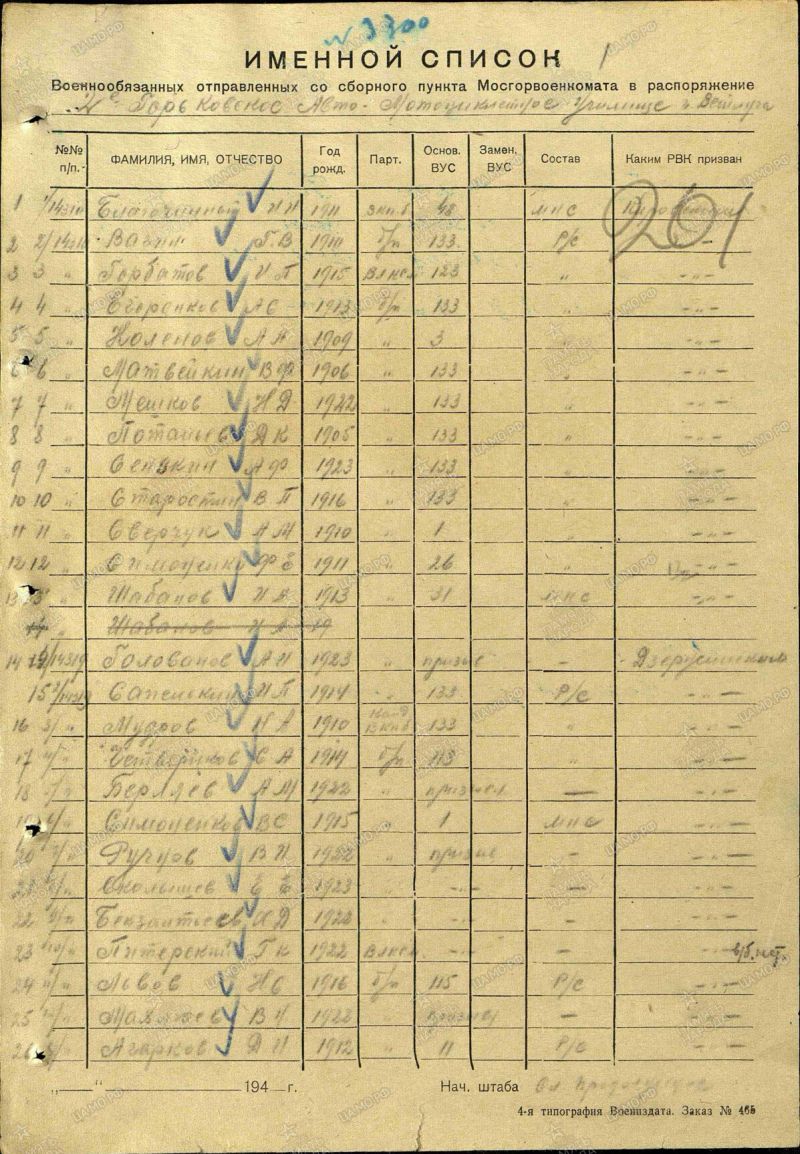 № 3300
ИМЕННОЙ СПИСОК 1
Военнообязанных отправленных со сборного пункта Мосгорвоенкомата в распоряжение
2е Горьковское Авто-Мотоциклетное Училище г. Ветлуга
№№ п/п. ФАМИЛИЯ, ИМЯ, ОТЧЕСТВО Год рожд. Парт. Основ. ВУС Замен. ВУС Состав Каким РВК призван
1 1/14310 И И 1911 48 мнс
201
2 2/14310 Вагин Г. В 1910 б/п 133 Р/С - „ -
3 3 „ Горбатов И П 1915 Влксм 123 „ - „ -
4 4 „ Егоренков А С 1913 б/п 133 „ - „ -
5 5 „ Коленов А А 1909 „ 3 „ - „ -
6 6 „ Матвейкин В Ф 1906 „ 133 „ - „ -
7 7 „ Мешков И Д 1922 „ 133 „ - „ -
8 8 „ Потапьев Д К 1905 „ 133 „ - „ -
9 9 „ Сенькин А Ф 1923 „ 133 „ - „ -
10 10 „ Старостин В П 1916 „ 133 „ - „ -
11 11 „ Сверчук А М 1910 „ 1 „ - „ -
12 12 „ Симоненко Ф Е 1911 „ 26 „ - „ -
13 „ Шабанов И В 1913 „ 31 мнс - „ -
„ Шабанов И А 19
14 /14319 Голованов А И 1923 „ призыв - Дзержинским
15 2/14319 И П 1914 „ 133 Р/С - „ -
16 3/„ Мудров И А 1910 канд Вкпб 133 „ - „ -
17 4/„ Четвериков С А 1914 б/п 113 „ - „ -
18 5/„ Беряев А М 1922 „ призыв — - „ -
19 6/„ Симоненков В С 1915 „ 1 мнс - „ -
20 7/„ Ручнов В И 1922 „ призыв - - „ -
21 8/„ Е Е 1923 „ - „ - — - „ -
22 9/„ И Д 1922 „ - „ - - - „ -
23 10/„ Питерский Г К 1922 Влксм - „ - - - „ - в/б. нет.
24 11/„ Львов И С 1916 б/п 115 Р/С - „ -
25 12/„ В И 1922 „ призыв - - „ -
26 „ Агарков Д И 1912 „ 11 Р/С - „ -
„——“ ——— 194 — г. Нач. штаба
4-я типография Воениздата. Заказ № 465